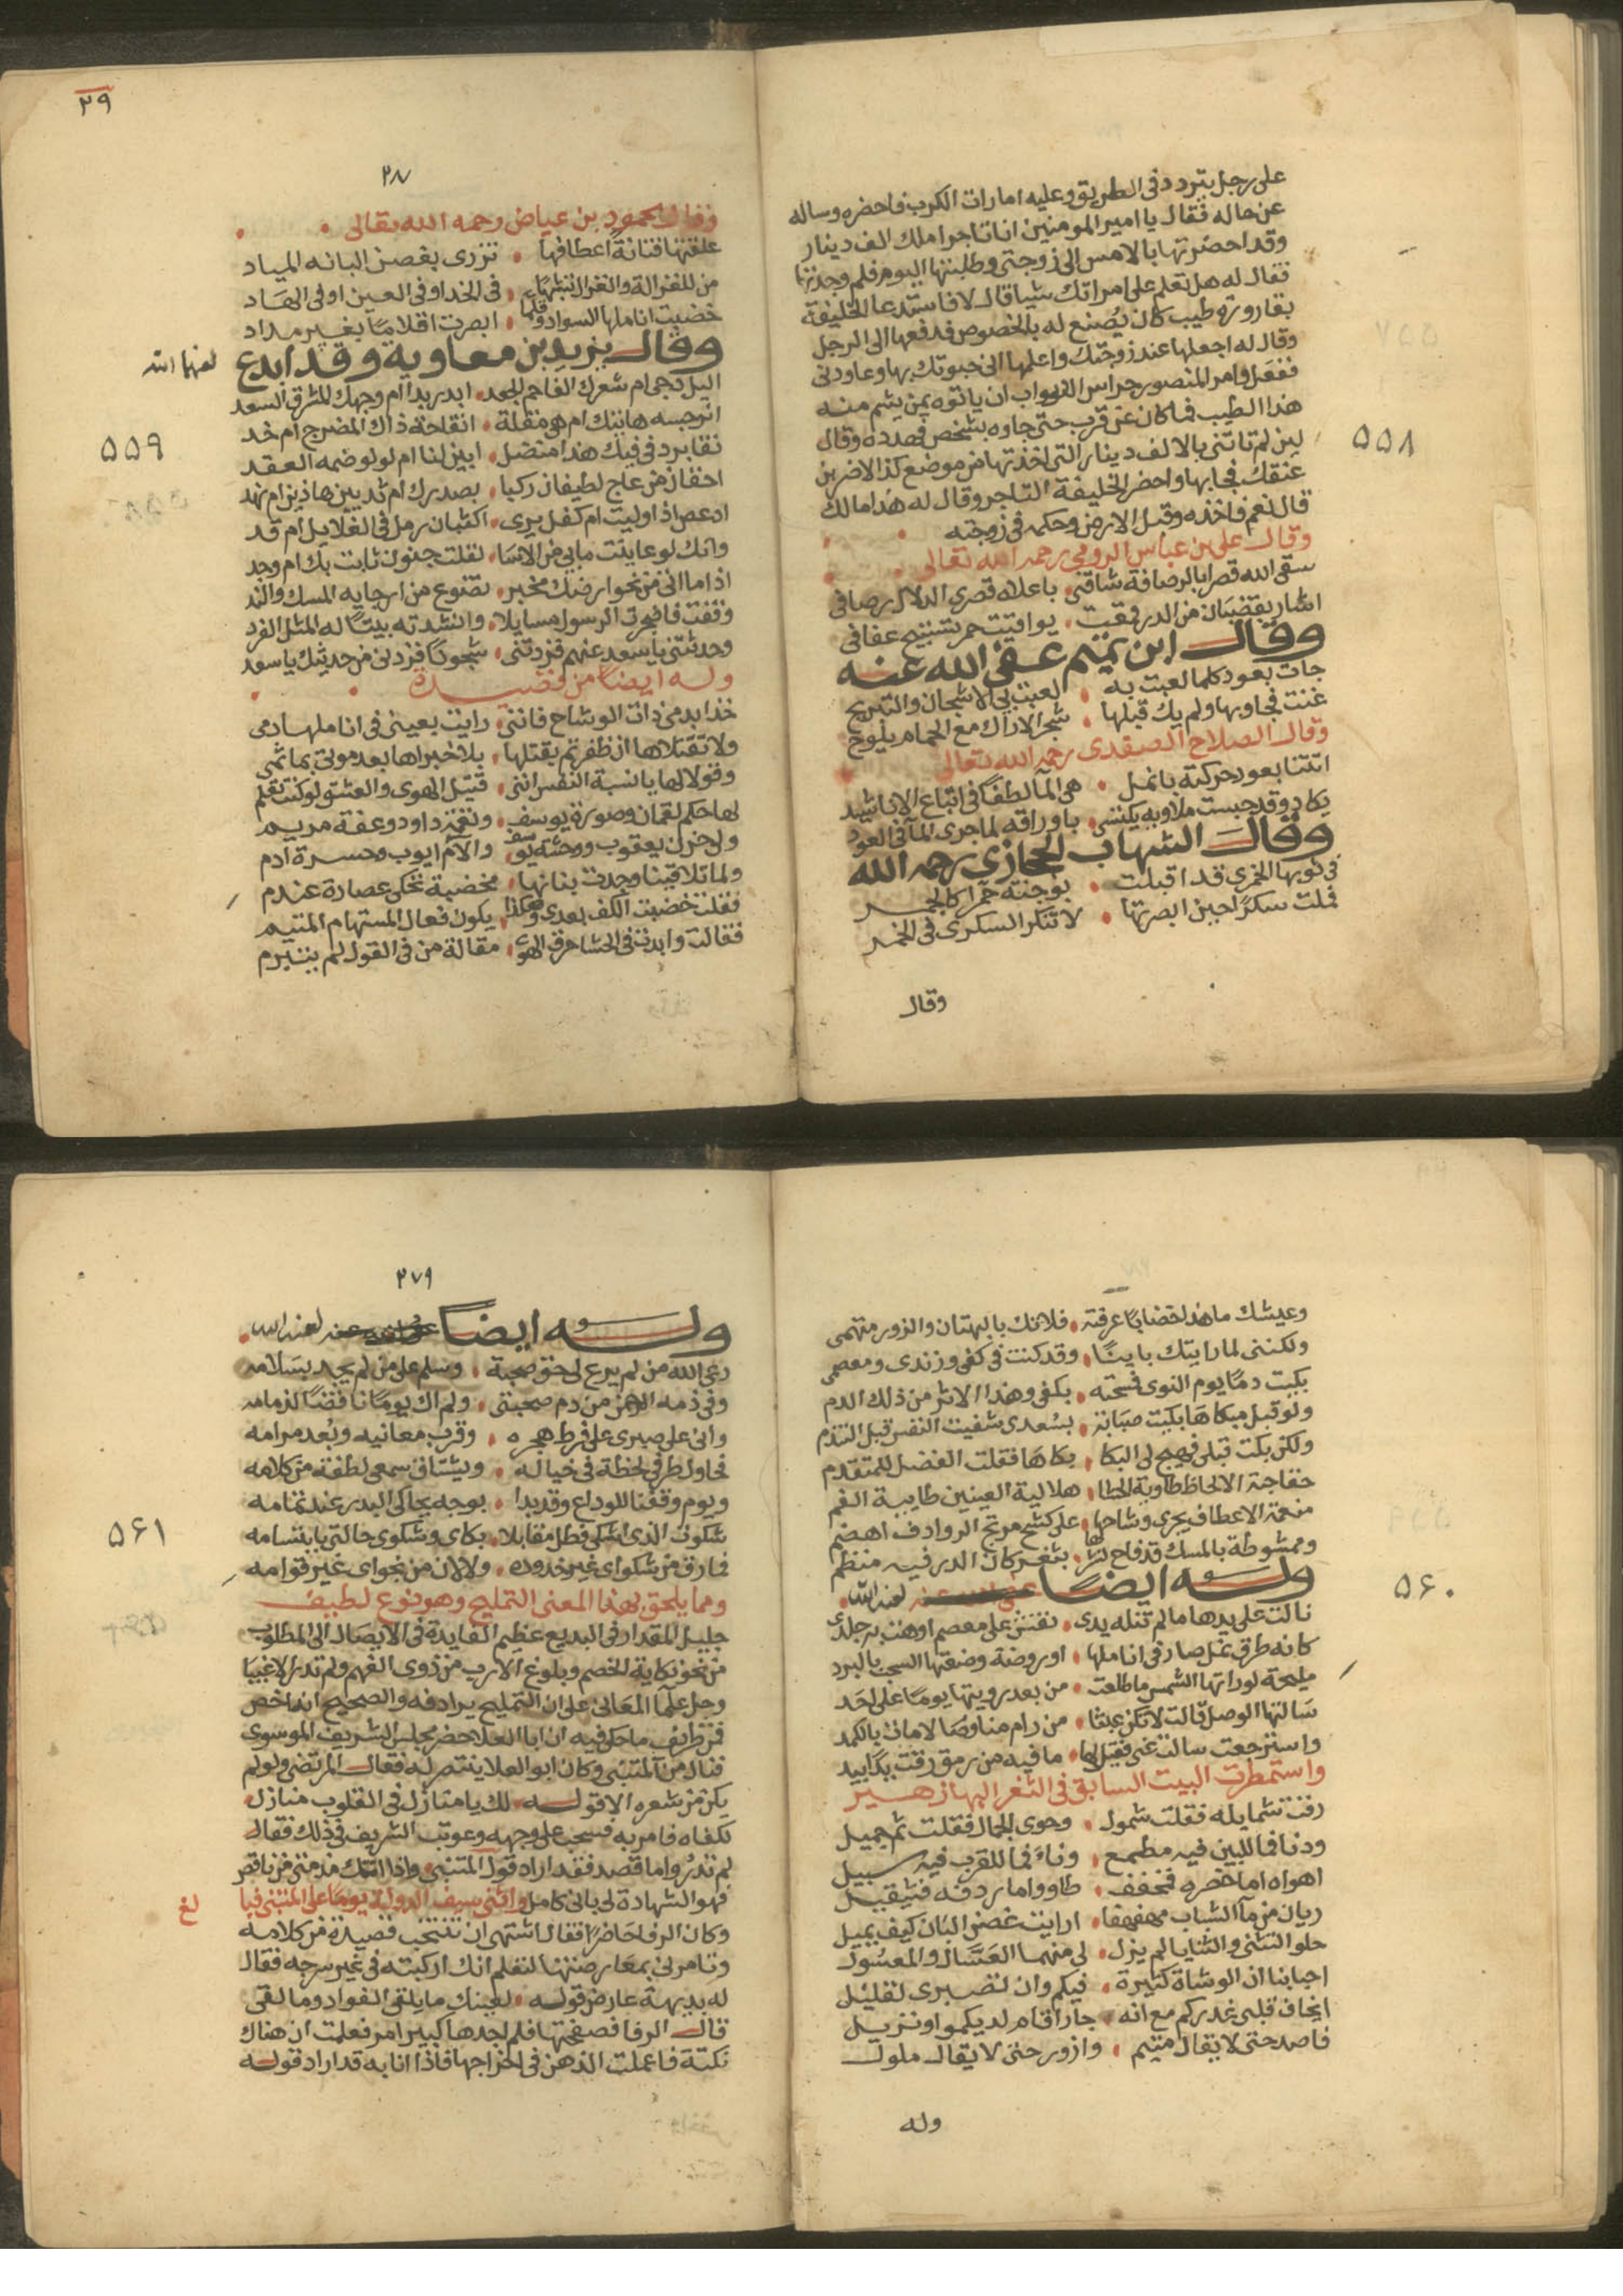 على رجل يتردد في الطريق وعليه امارات الكرب فاحضره وساله
عن حاله فقال يا امير المومنين انا تاجر املك الف دينار
وقد احضرتها بالامس الى زوجتي وطلبتها اليوم فلم وجدتها
فقال له هل تعلم على امراتك شيا قال لا فاستدعا الخليفة
بقارورة طيب كان يصنع له بالخصوص فدفعها الى الرجل
وقال له اجعلها عند زوجتك واعلمها اني حبوتك بها وعاودني
ففعل وامر المنصور حراس الابواب ان ياتوه بمن يشم منه
هذا الطيب فما كان عن قرب حتى جاوه بشخص فهدده وقال
لين لم تاتني بالالف دينار التي اخذتها من موضع كذا لاضربن
عنقك فجا بها واحضر الخليفة التاجر وقال له هذا مالك
قال نعم فاخذه وقبل الارض وحكمه في زوجته
وقال علي بن عباس الرومي رحمه الله تعالى
سقى الله قصرا بالرصافة شاقني • باعلاه قصري الدلال رصافي
اشار بقضبان من الدر قمعت • يواقيت حمر تستبيح عفافي
وقال ابن تميم عفى الله عنه
جات بعود كلما لعبت به • لعبت بي الاشجان والتبريح
غنت فجاوبها ولم يك قبلها • شجر الاراك مع الحمام ينوح
وقال الصلاح الصفدي رحمه الله تعالى
اتتنا بعود حركته بانمل • هي الما لطفا في اتباع الاناشيد
يكاد وقد جست ملاويه يكتسي • باوراقه لما جرى الما في العود
وقال الشهاب الحجازي رحمه الله
في ثوبها الخمري قد اقبلت • بوجنة حمرا كالجمر
فملت سكرا حين ابصرتها • لا تنكر السكرى في الخمر
وقال
٥٥٨
٢٩
وقال محمود بن عياض رحمه الله تعالى
علقتها فتانة اعطافها • تزرى بغصن البانه المياد
من للغزالة والغزال تشبها • في الخد او في العين او في الهاد
خضبت اناملها السواد وقلما • ابصرت اقلاما بغير مداد
وقال يزيد بن معاويه وقد ابدع
لعنهما الله
اليل دجى ام شعرك الفاحم الجعد • ابدر بدا ام وجهك المشرق السعد
انرجسه هاتيك ام هي مقلة • اتفاحة ذاك المضرج ام خد
نقا برد في فيك هذا منضد • ابين لنا ام لولو ضمه العقد
احقان من عاج لطيفان ركبا • بصدرك ام ثديين هاذين ام نهد
ادعص اذا وليت ام كفل يرى • اكثبان رمل في الغلايل ام قد
وانك لو عاينت ما بي من الاسا • لقلت جنون ثابت بك ام وجد
اذا ما اتى من نحو ارضك مخبر • تضوع من ارجايه المسك والند
وقفت فاضجرت الرسول مسايلا • وانشدته بيتا له المثل الفرد
وحدثتني يا سعد عنهم فزدتني • شجونا فزدني من حديثك يا سعد
وله ايضا من قصيدة
خذا بدمي ذات الوشاح فانني • رايت بعيني في اناملها دمي
ولا تقتلاها ان ظفرتم بقتلها • بلا خبراها بعد موتي بماتمي
وقولا لها يا نسبة النفس انني • قتيل الهوى والعشق لو كنت تعلم
لها حكم لقمان وصورة يوسف • ونغمة داود وعفة مريم
ولي حزن يعقوب ووحشة يونس • والام ايوب وحسرة ادم
ولما تلاقينا وجدت بنانها • مخضبة تحكي عصارة عندم
فقلت خضبت الكف بعدي وهكذا • يكون فعال المستهام المتيم
فقالت وابدت في الحشا حرق الهوى • مقالة من في القول لم يتبرم
٥٥٩
وعيشك ما هذا خضابا عرفته • فلا تك بالبهتان والزور متهمي
ولكنني لما رايتك باينا • وقد كنت في كفي وزندي ومعصمي
بكيت دما يوم النوى فمسحته • بكفي وهذا الاثر من ذلك الدم
ولو قبل مبكاها بكيت صبابة • بسعدى شفيت النفس قبل التندم
ولكن بكت قبلي فهيج لي البكا • بكاها فقلت الفضل للمتقدم
خفاجية الالحاظ طاوية الحشا • هلالية العينين طايية الفم
منعمة الاعطاف يجري وشاحها • على كشح مرتج الروادف اهضم
وممشوطة بالمسك قد فاح نشرها • بثغر كان الدر فيه منظم
وله ايضا لعنه الله
نالت على يدها ما لم تنله يدي • نقش على معصم اوهت به جلدي
كانه طرق نمل صار في اناملها • او روضة وضعتها السحب بالبرد
مليحة لو راتها الشمس ما طلعت • من بعد رويتها يوما على احد
سالتها الوصل قالت لا تكن عبثا • من رام منا وصالا مات بالكمد
واسترجعت سالت عني فقيل لها • ما فيه من رمق دقت يدا بيد
واستمطرت البيت السابق في الثغر البها زهير
رقت شمايله فقلت شمول • وحوى الجمال فقلت ثم جميل
ودنا فما للبين فيه مطمع • وناى فما للقرب فيه سبيل
اهواه اما خصره فمخفف • طاو واما ردفه فثقيل
ريان من ما الشباب مهفهفا • ارايت غصن البان كيف يميل
حلو التثني والثنايا لم يزل • لي منهما العسال والمعسول
احبابنا ان الوشاة كثيرة • فيكم وان تصبري لقليل
ايخاف قلبي غدركم مع انه • جار اقام لديكمو او نزيل
فاصد حتى لا يقال متيم • وازور حتى لا يقال ملول
وله
٥۶٠
٢٧٩
وله ايضا لعنه الله
رعى الله من لم يرع لي حق صحبة • وسلم على من لم يجد بسلامه
وفي ذمه الرحمن من ذم صحبتي • ولم اك يوما ناقضا لذمامه
واني على صبري على فرط هجره • وقرب معانيه وبعد مرامه
يحاول طرفي لحظة في خياله • ويشتاق سمعي لفظة من كلامه
ويوم وقفنا للوداع وقد بدا • بوجه يحاكي البدر عند تمامه
شكوت الذي اشكي فظل مقابلا • بكاي وشكوى حالتي بابتسامه
فما رق من شكواي غير خدوده • ولا لان من نجواي غير قوامه
ومما يلحق بهذا المعنى التمليح وهو نوع لطيف
جليل المقدار في البديع عظيم الفايدة في الايصال الى المطلوب
من نحو نكاية الخصم وبلوغ الارب من ذوي الفهم ولم تدر الاغبيا
وجل علما المعاني على ان التمليح يرادفه والصحيح انه اخص
فمن ظرايف ما حكي فيه ان ابا العلا حضر مجلس الشريف الموسوي
فنال من المتنبي وكان ابو العلا ينتصر له فقال المرتضي ولو لم
يكن من شعره الا قوله لك يا منازل في القلوب منازل
لكفاه فامر به فسحب على وجهه وعوتب الشريف في ذلك فقال
لم تدروا ما قصد فقد اراد قول المتنبي واذا اتتك مذمتي من ناقص
فهو الشهادة لي باني كامل واثنى سيف الدولة يوما على المتنبي
وكان الرفا حاضرا فقال اشتهي ان تنتخب قصيدة من كلامه
وتامرني بمعارضتها لتعلم انك اركبته في غير سرجه فقال
له بديهة عارض قوله لعينك ما يلقى الفواد وما لقي
قال الرفا فصفحتها فلم اجدها كبير امر فعلمت ان هناك
نكتة فاعملت الذهن في اخراجها فاذا انا به قد اراد قوله
٥۶١